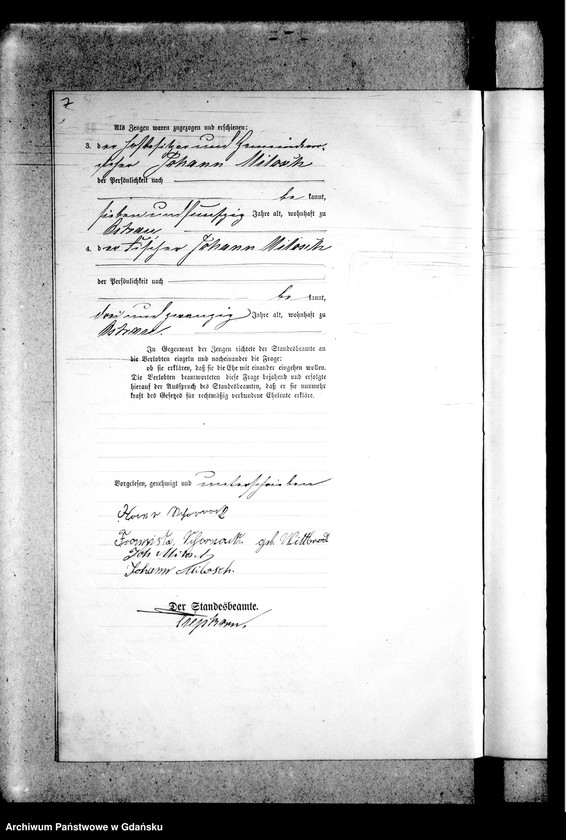 7
Als Zeugen waren zugezogen und erschienen:
3. der Hofbesitzer und Gemeindevor-
steher Johann Milosch
der Persönlichkeit nach
be kannt,
sieben und fünfzig Jahre alt, wohnhaft zu
4. der Fischer Johann Milosch
der Persönlichkeit nach
be kannt,
drei und zwanzig Jahre alt, wohnhaft zu
In Gegenwart der Zeugen richtete der Standesbeamte an
die Verlobten einzeln und nacheinander die Frage:
ob sie erklären, daß sie die Ehe mit einander eingehen wollen.
Die Verlobten beantworteten diese Frage bejahend und erfolgte
hierauf der Ausspruch des Standesbeamten, daß er sie nunmehr
kraft des Gesetzes für rechtmäßig verbundene Eheleute erkläre.
Vorgelesen, genehmigt und unterschrieben
geb. Wittbrodt
Joh Milosch
Johann Milosch.
Der Standesbeamte.
Archiwum Państwowe w Gdańsku